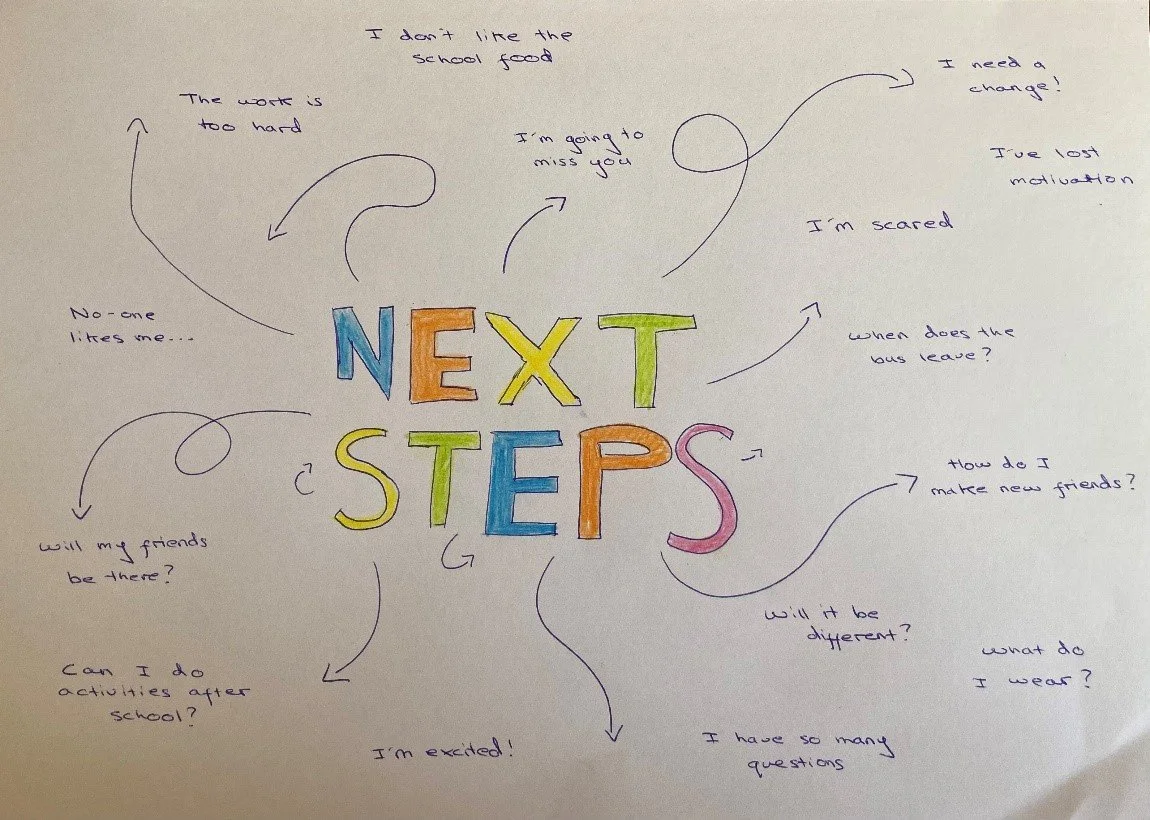 I don't like the
school food
The work is
too hard
I'm going to
miss you
I need a
change!
I've lost
motivation
I'm scared
No-one
likes me...
NEXT
STEPS
when does the
bus leave?
How do I
make new friends?
will my friends
be there?
will it be
different?
what do
I wear?
Can I do
activities after
school?
I'm excited!
I have so many
questions